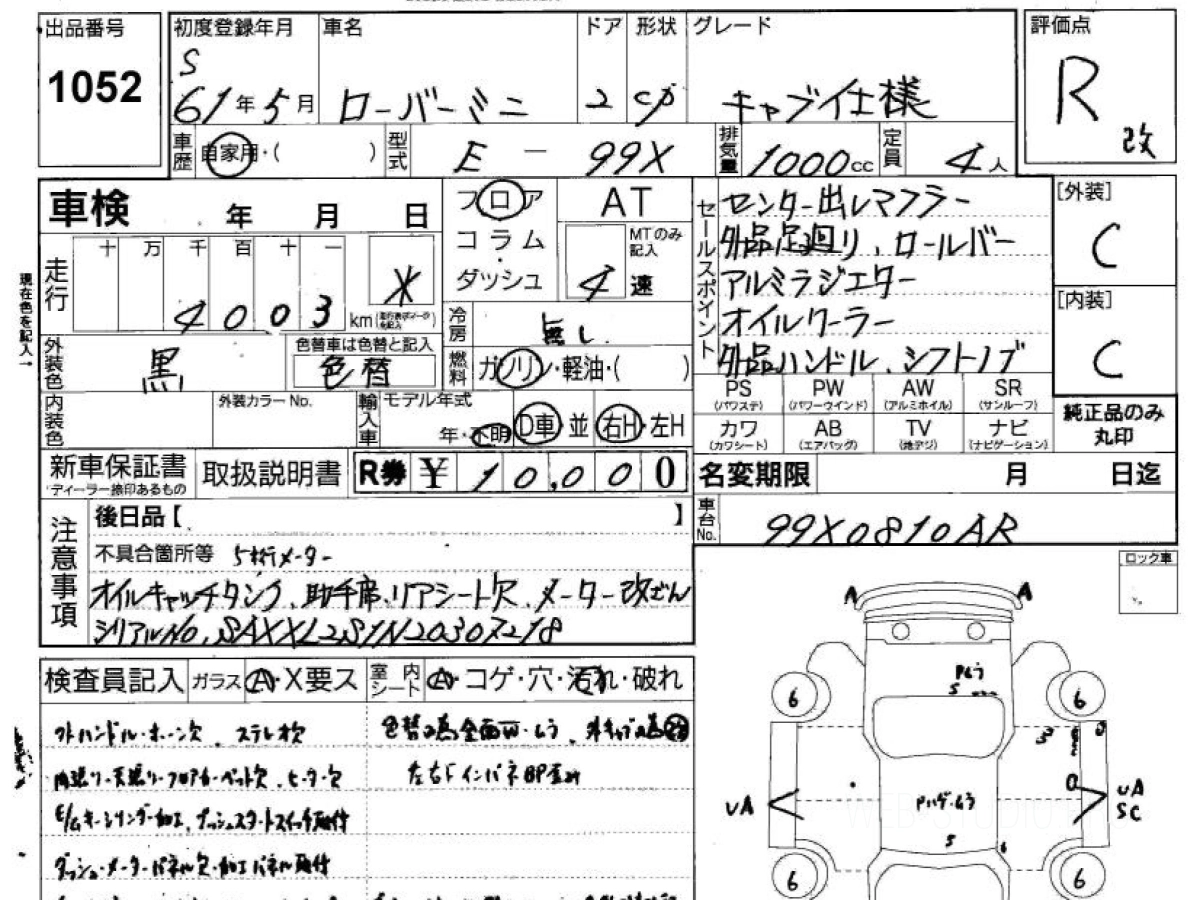 出品番号
1052
初度登録年月
S
61年5月
車名
ローバーミニ
ドア
2
形状
CP
グレード
キャブ仕様
評価点
R
改
車歴
自家用・( )
型式
E - 99X
排気量
1000cc
定員
4人
車検 年 月 日
フロア
コラム
・
ダッシュ
AT
MTのみ
記入
4 速
セールスポイント
センター出しマフラー
外品足廻り、ロールバー
アルミラジエター
オイルクーラー
外品ハンドル、シフトノブ
[外装]
C
[内装]
C
現在色を記入→
走行
十 万 千 百 十 一
4003
*
km
冷房
無し
外装色
黒
色替車は色替と記入
色替
燃料
ガソリン・軽油・( )
PS
(パワステ)
PW
(パワーウインド)
AW
(アルミホイル)
SR
(サンルーフ)
カワ
(カワシート)
AB
(エアバッグ)
TV
(地デジ)
ナビ
(ナビゲーション)
純正品のみ
丸印
内装色
外装カラーNo.
輸入車
モデル年式
年・不明
D車・並
右H・左H
新車保証書
ディーラー捺印あるもの
取扱説明書
R券 ¥ 10,000
名変期限 月 日迄
車台No.
99X0810AR
注意事項
後日品【 】
不具合箇所等 5桁メーター
オイルキャッチタンク、助手席、リアシート欠、メーター改ざん
シリアルNo, SAXXL2S1N20307218
ロック車
検査員記入
ガラス A・X要ス
室内シート
A・コゲ・穴・汚れ・破れ
外ハンドル・ホーン欠、ステレオ欠
色替の為全面W・ムラ
内張り・天張り・フロアカーペット欠、ヒーター欠
左右Fインパネ
プッシュスタートスイッチ取付
ダッシュ・メーターパネル欠・加工パネル取付
A A
6 6
S
UA
Pハゲ・ムラ
UA
SC
S
6 6